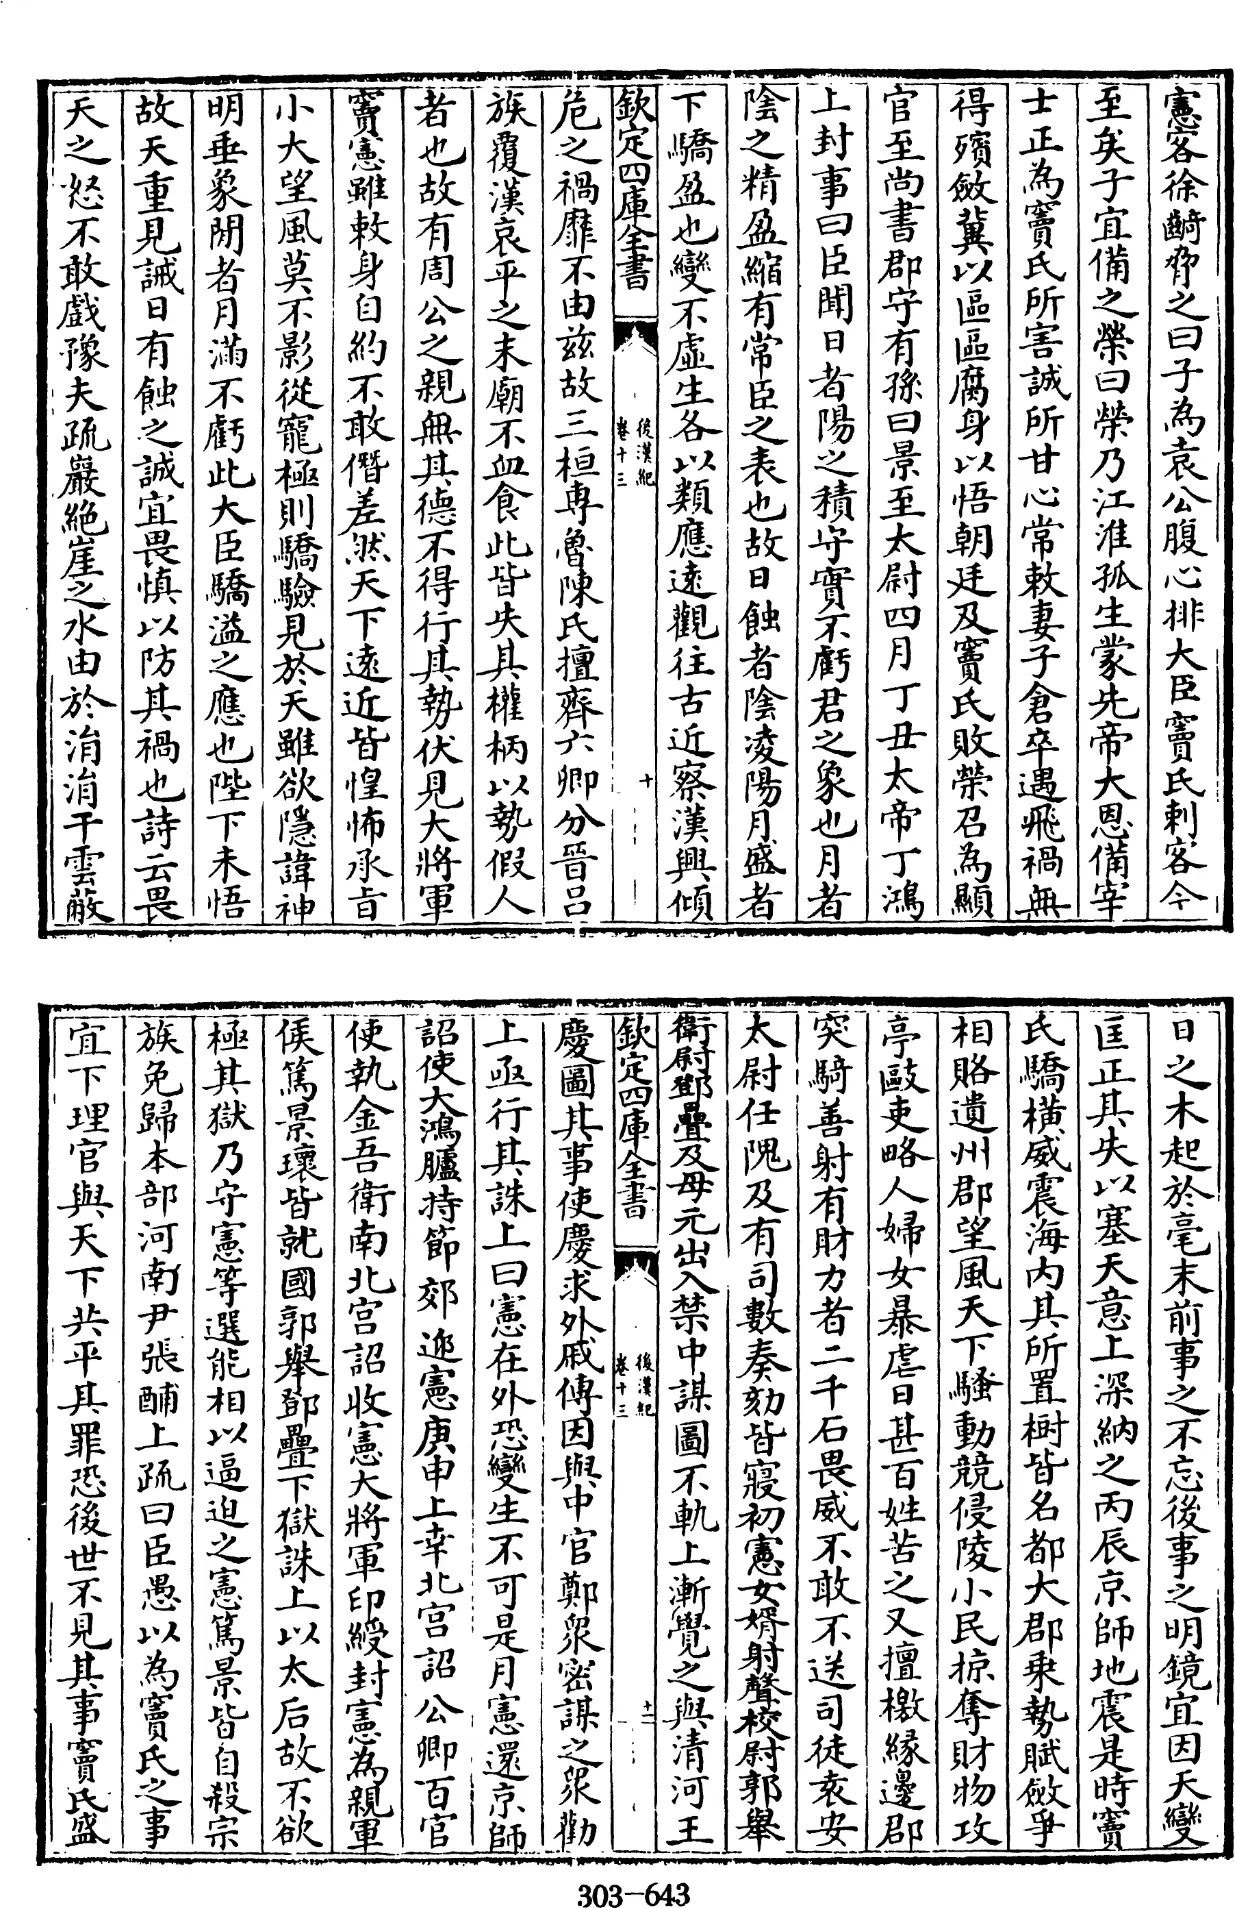 憲客徐齮脅之曰子為袁公腹心排大臣竇氏刺客今
至矣子宜備之榮曰榮乃江淮孤生蒙先帝大恩備宰
士正為竇氏所害誠所甘心常敕妻子倉卒遇飛禍無
得殯斂冀以區區腐身以悟朝廷及竇氏敗榮召為顯
官至尚書郡守有孫曰景至太尉四月丁丑太帝丁鴻
上封事曰臣聞日者陽之積守實不虧君之象也月者
陰之精盈縮有常臣之表也故日蝕者陰凌陽月盛者
下驕盈也變不虛生各以類應遠觀往古近察漢興傾
欽定四庫全書
後漢紀
卷十三
十
危之禍靡不由兹故三桓専魯陳氏擅齊六卿分晉吕
族覆漢哀平之末廟不血食此皆失其權柄以勢假人
者也故有周公之親無其德不得行其勢伏見大將軍
竇憲雖敕身自約不敢僭差然天下遠近皆惶怖承旨
小大望風莫不影從寵極則驕驗見於天雖欲隱諱神
明垂象閉者月滿不虧此大臣驕溢之應也陛下未悟
故天重見誡日有蝕之誠宜畏慎以防其禍也詩云畏
天之怒不敢戲豫夫疏巖絶崖之水由於涓涓干雲蔽
日之木起於毫末前事之不忘後事之明鏡宜因天變
匡正其失以塞天意上深納之丙辰京師地震是時竇
氏驕横威震海内其所置樹皆名都大郡乗勢賦斂爭
相賂遺州郡望風天下騷動競侵陵小民掠奪財物攻
亭毆吏略人婦女暴虐日甚百姓苦之又擅檄緣邊郡
突騎善射有財力者二千石畏威不敢不送司徒袁安
太尉任隗及有司數奏劾皆寢初憲女婿射聲校尉郭舉
衛尉鄧疊及母元出入禁中謀圖不軌上漸覺之與清河王
欽定四庫全書
後漢紀
卷十三
十一
慶圖其事使慶求外戚傳因與中官鄭衆密謀之衆勸
上亟行其誅上曰憲在外恐變生不可是月憲還京師
詔使大鴻臚持節郊迎憲庚申上幸北宮詔公卿百官
使執金吾衛南北宮詔收憲大將軍印綬封憲為親軍
侯篤景瓌皆就國郭舉鄧疊下獄誅上以太后故不欲
極其獄乃守憲等選能相以逼迫之憲篤景皆自殺宗
族免歸本部河南尹張酺上疏曰臣愚以為竇氏之事
宜下理官與天下共平其罪恐後世不見其事竇氏盛
303-643